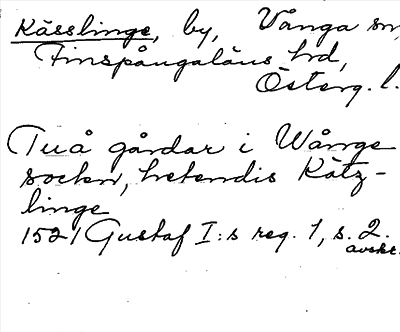 Kässlinge, by, Vånga sn,
Finspångaläns hrd,
Österg. l.
Tuå gårdar i Wånge
sockn, hetendis Kätz-
linge
1521 Gustaf I:s reg. 1, s. 2.
avskr.